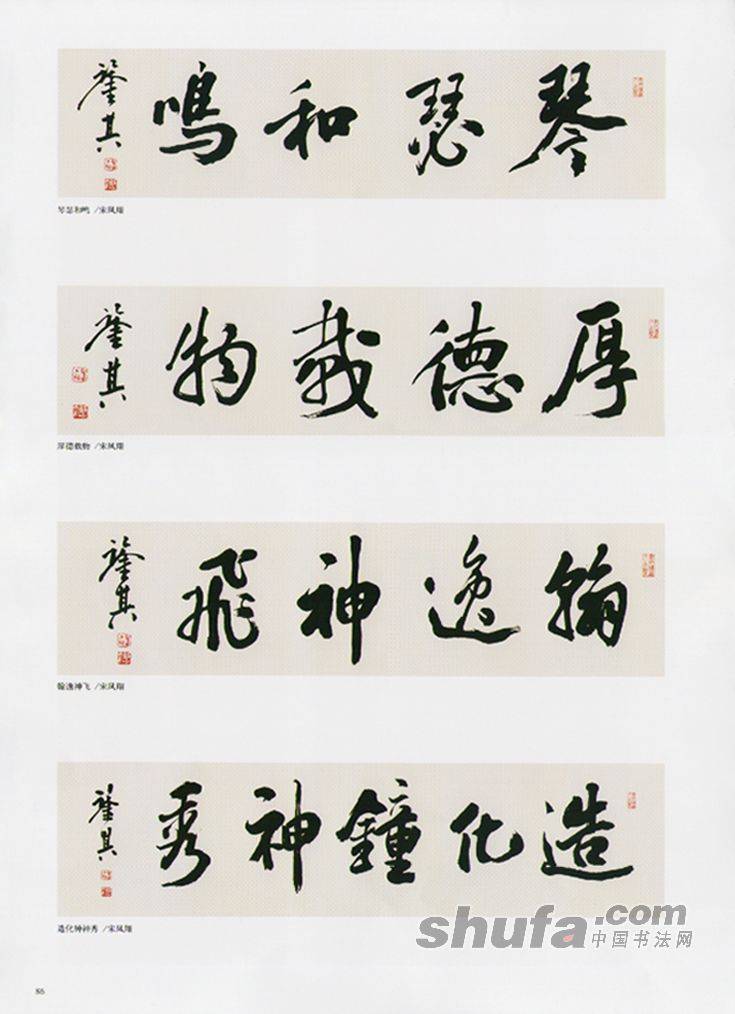 琴瑟和鳴
其
琴瑟和鸣 /宋凤翔
厚德載物
其
厚德载物 /宋凤翔
翰逸神飛
其
翰逸神飞 /宋凤翔
造化鐘神秀
其
造化钟神秀 /宋凤翔
shufa.com
中国书法网
86